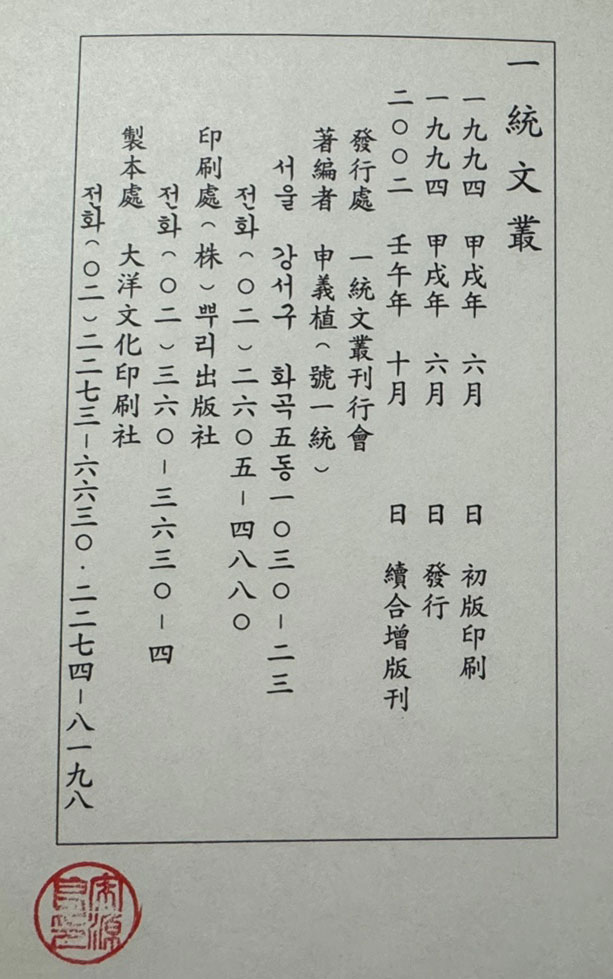 一統文叢
一九九四 甲戌年 六月 日 初版印刷
一九九四 甲戌年 六月 日 發行
二〇〇二 壬午年 十月 日 續合增版刊
發行處 一統文叢刊行會
著編者 申義植(號一統)
서울 강서구 화곡五동一〇三〇-二三
전화(〇二)二六〇五-四八八〇
印刷處(株)뿌리出版社
전화(〇二)三六〇-三六三〇-四
製本處 大洋文化印刷社
전화(〇二)二二七三-六六三〇·二二七四-八一九八